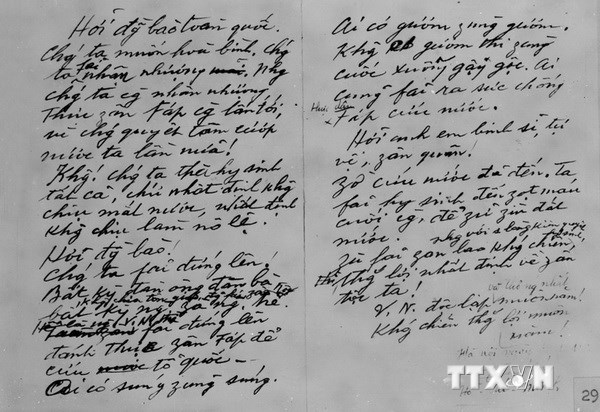 Hỡi đg bào toàn quốc.
Chg ta muốn hòa bình, chg
ta fải nhân nhượng. Nhg
chg ta cg nhân nhượng
thực zân Fáp cg lấn tới,
vì chg quyết tâm cướp
nước ta lần nữa!
Khg! Chg ta thà hy sinh
tất cả, chứ nhất định khg
chịu mất nước, nhất định
khg chịu làm nô lệ.
Hỡi đg bào!
Chg ta fải đứng lên!
Bất kỳ đàn ông đàn bà
bất kỳ ng zà ng trẻ.
fải đứng lên
đánh thực zân Fáp để
cứu tổ quốc –
Ai có súng zùng súng.
Ai có gươm zùng gươm.
Khg có gươm thì zùng
cuốc xuổng gậy gộc. Ai
cũng fải ra sức chống
thực zân Fáp cứu nước.
Hỡi anh em binh sĩ, tự
vệ, zân quân!
Zờ cứu nước đã đến. Ta
fải hy sinh đến zọt máu
cuối cg, để zữ zìn đất
nước.
Zù fải zan lao khg chiến,
nhg với 1 lòng kiên quyết hy sinh,
thg lợi nhất định về zân
tộc ta!
V.N. độc lập và thg nhất muôn năm!
Khg chiến thg lợi muôn
năm!
Hà nội
TTXVN
29